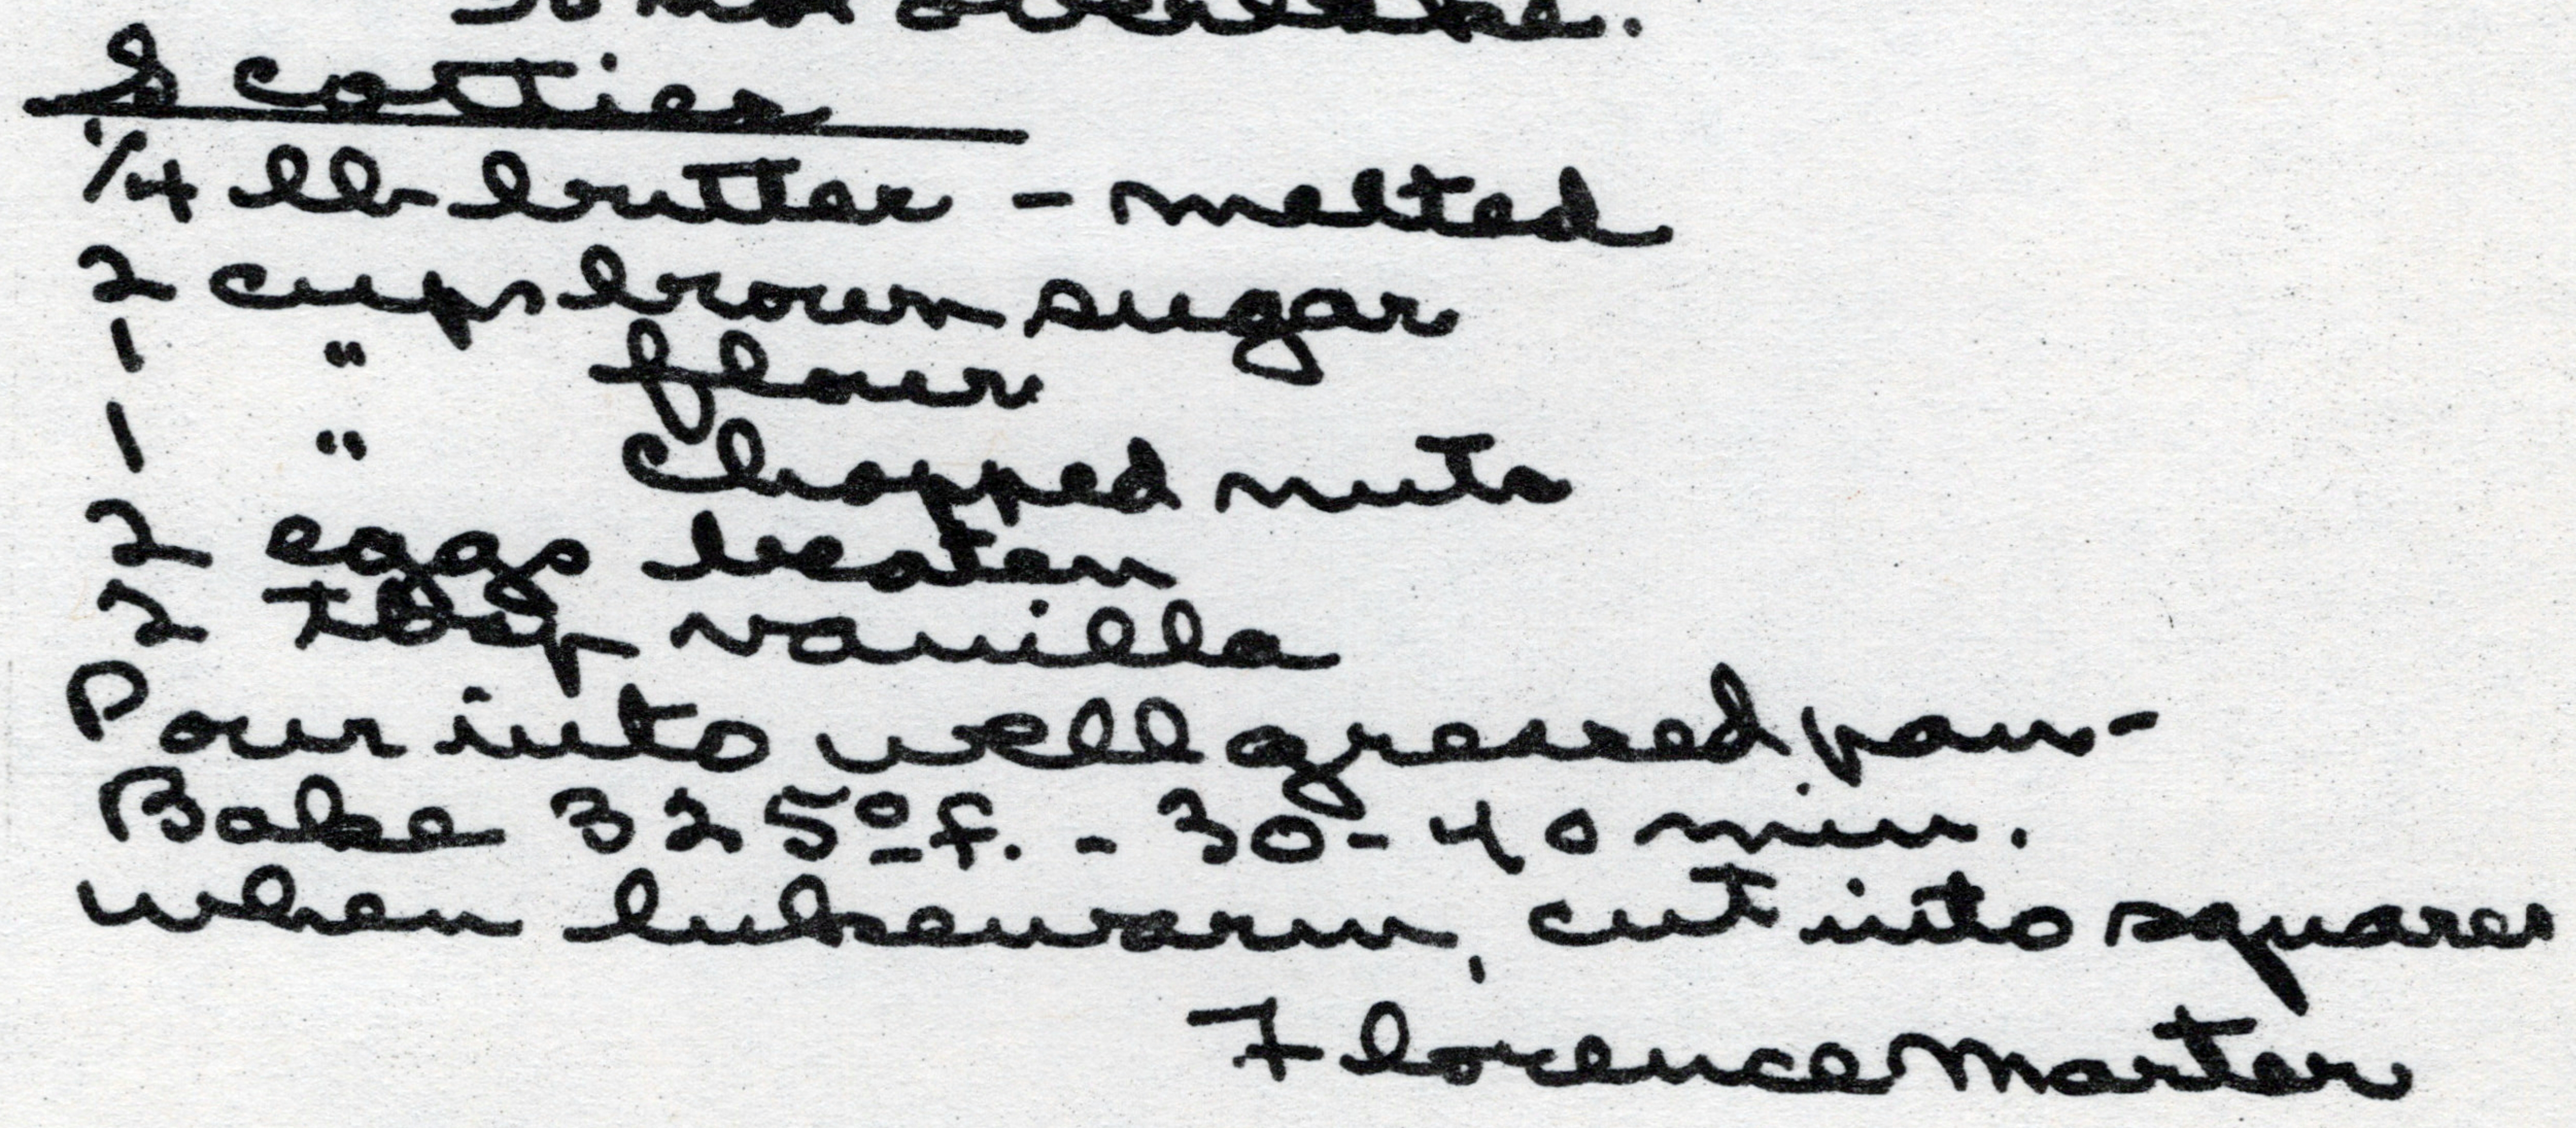 Do not overbake.
Scotties
1/4 lb butter - melted
2 cups brown sugar
1 " flour
1 " chopped nuts
2 eggs beaten
2 Tbsp vanilla
Pour into well greased pan-
Bake 325º f. - 30-40 min.
when lukewarm, cut into squares
Florence Marter